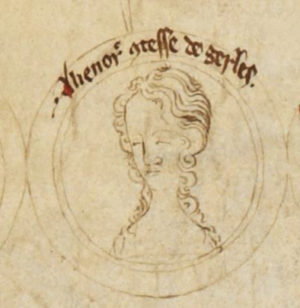 Alienor' ctesse de gerles.